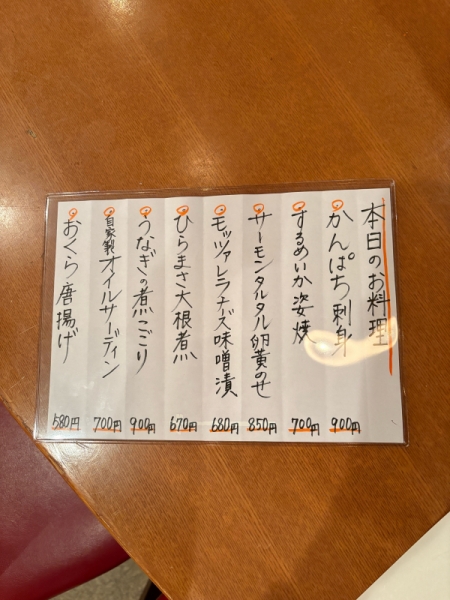 本日のお料理
かんぱち刺身 900円
するめいか姿焼 700円
サーモンタルタル卵黄のせ 850円
モッツァレラチーズ味噌漬 680円
ひらまさ大根煮 670円
うなぎの煮こごり 900円
自家製オイルサーディン 700円
おくら唐揚げ 580円